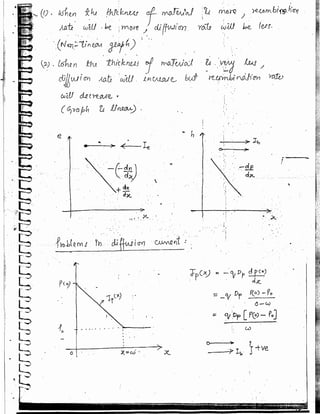 (1). When the thickness of material is more, recombination
rate will be more, diffusion rate will be less.
(Non-linear graph)
(2). When the thickness of material is very less,
diffusion rate will increase but recombination rate
will decrease.
(Graph is linear)
e
Ie
-(-dn/dx)
+dn/dx
x
h
Ih
-dp/dx
x
Problems in diffusion current :
P(o)
Jp(x)
Po
0
x=ω
x
Jp(x) = -q Dp dp(x)/dx
= -q Dp P(o) - Po / o-ω
= q Dp [P(o) - Po] / ω
Ih } +ve